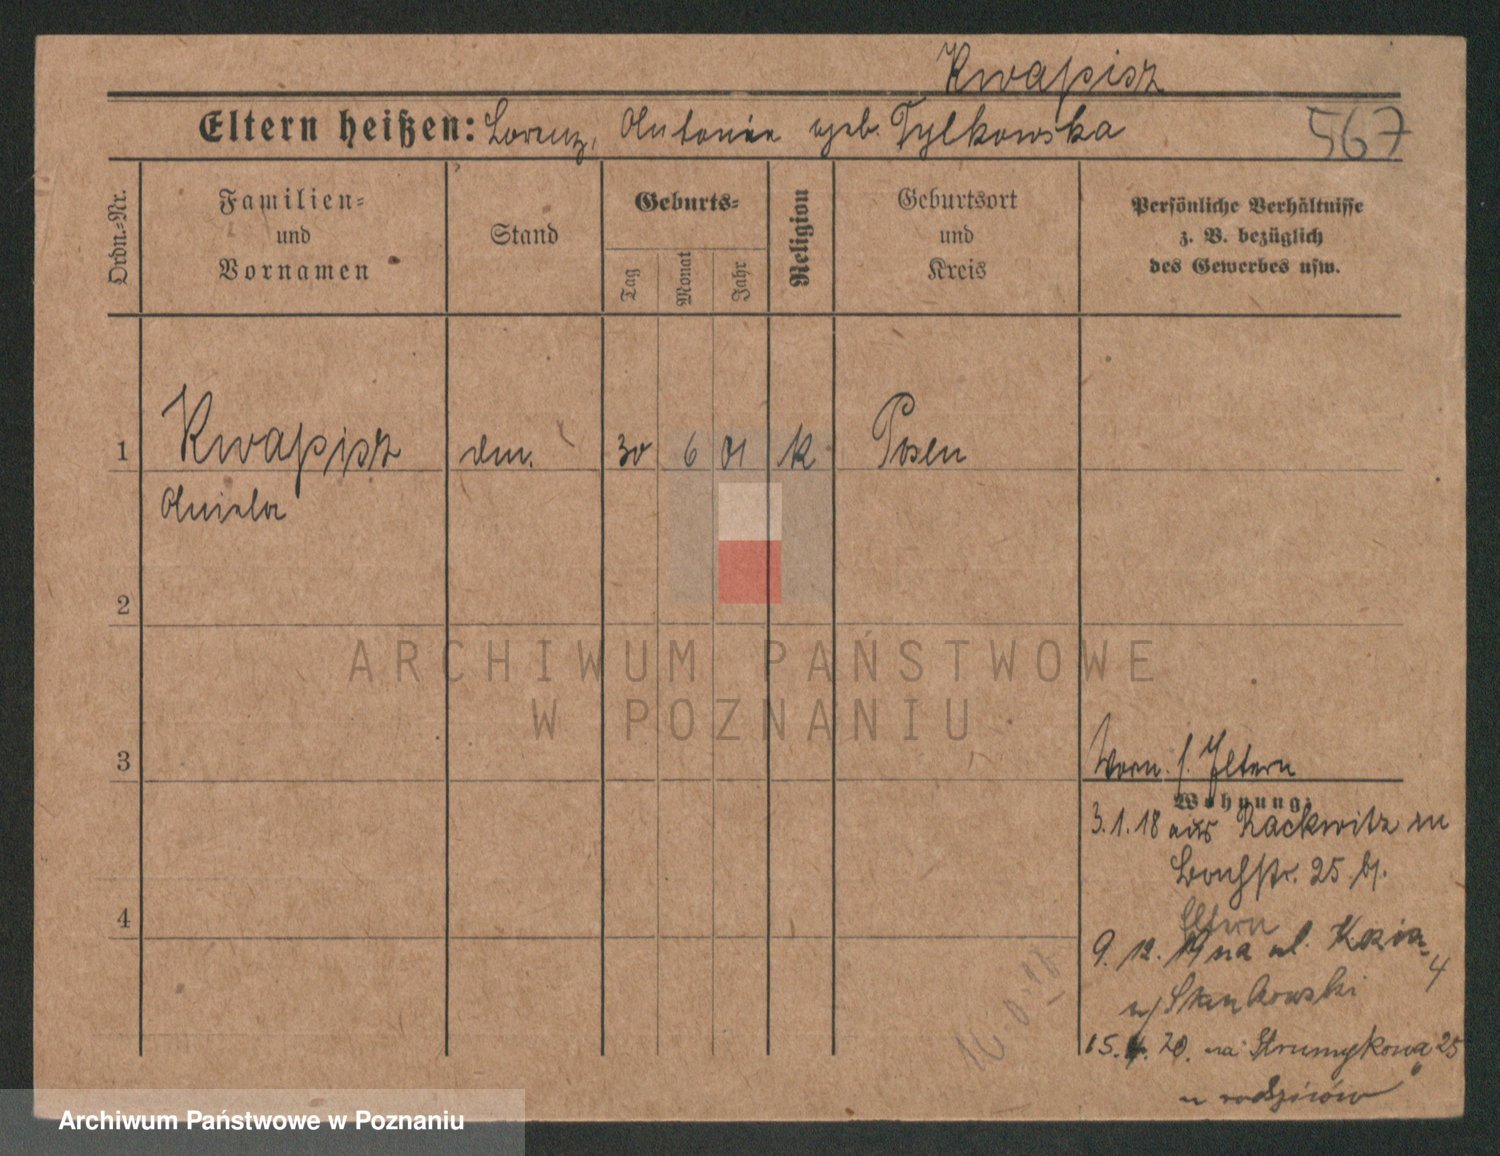 Kwapisz
Eltern heißen: Lorenz, Antonie geb. Tylkowska
567
Ordn.-Nr.
Familien-
und
Vornamen
Stand
Geburts-
Tag
Monat
Jahr
Religion
Geburtsort
und
Kreis
Persönliche Verhältnisse
z. B. bezüglich
des Gewerbes usw.
1
Kwapisz
30
6
01
k
Posen
Aniela
2
3
4
ARCHIWUM PAŃSTWOWE
W POZNANIU
Vorm. s. Eltern
Wohnung:
3.1.18 aus Rackwitz
25 bj.
Eltern
9.12.19 na ul. Kozia 4
u/ Stankowski
15.4.20. na Strumykową 25
u rodziców
Archiwum Państwowe w Poznaniu